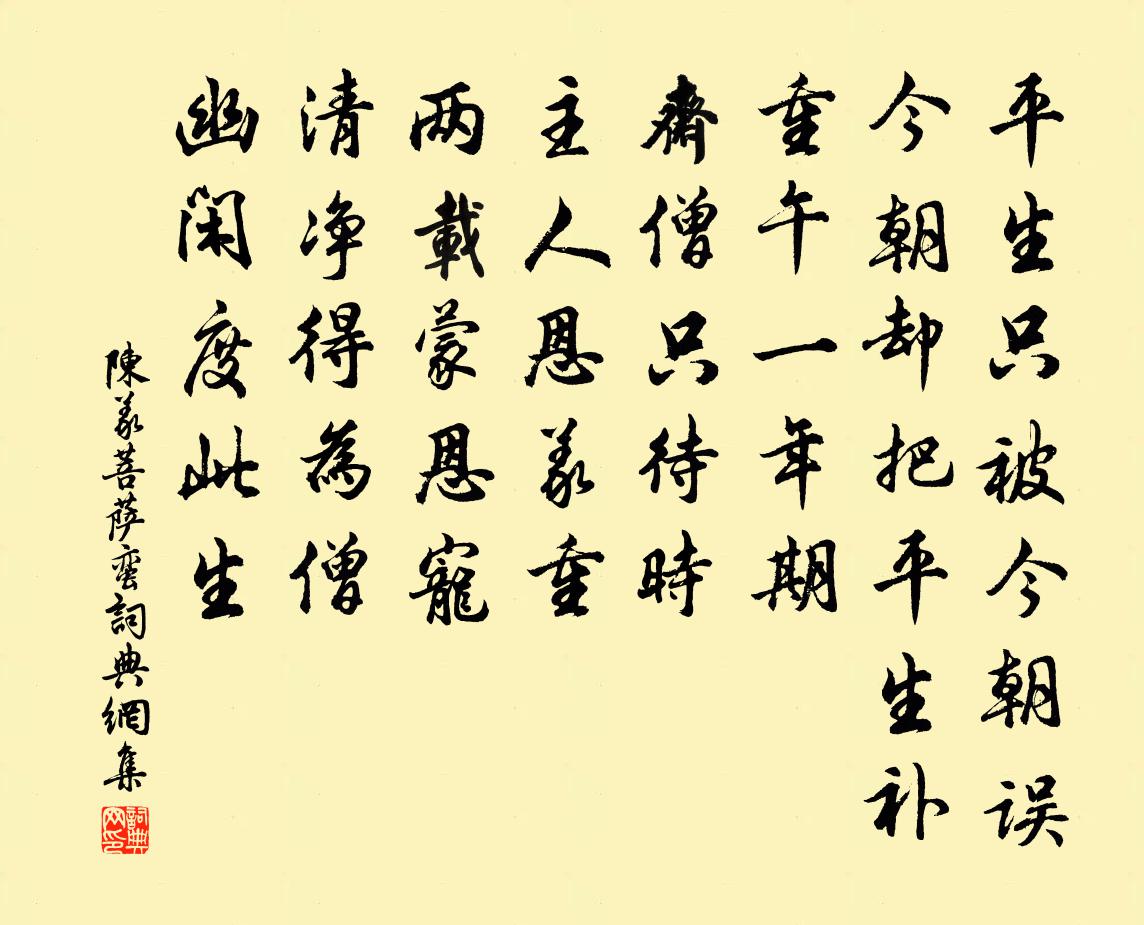 平生只被今朝误
今朝却把平生补
重午一年期
齋僧只待時
主人恩义重
两載蒙恩寵
清净得為僧
幽闲度此生
陳义菩萨蛮詞典網集
詞典网印